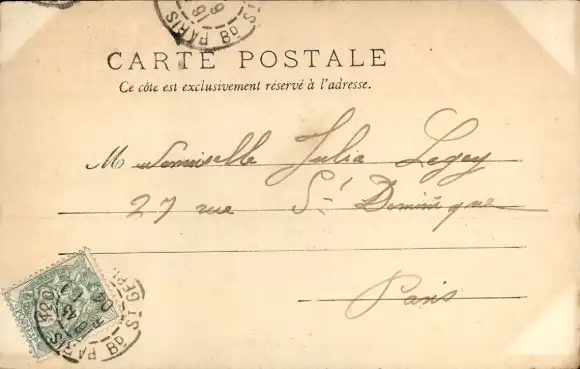 PARIS Bd St
CARTE POSTALE
Ce côte est exclusivement réservé à l'adresse.
Mademoiselle Julia Legay
27 rue St Dominique
Paris
PARIS Bd St GER